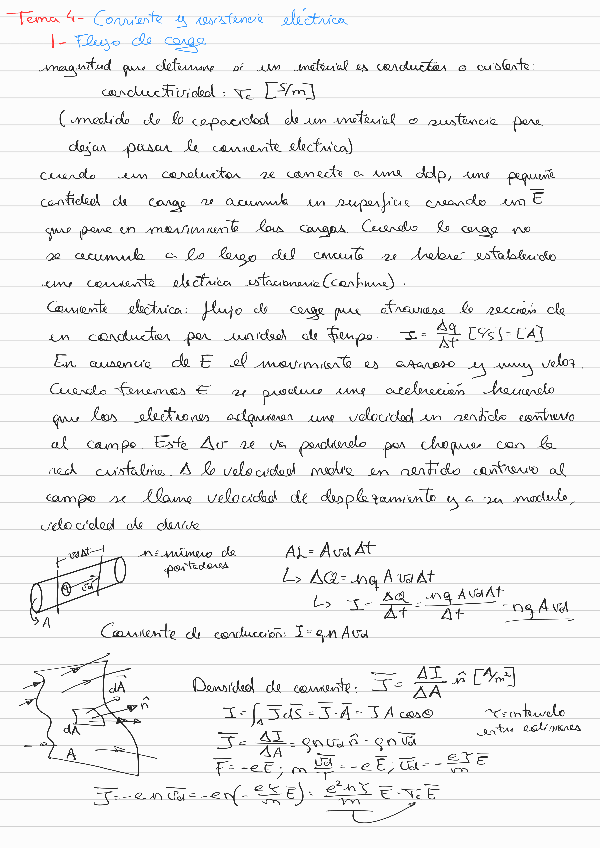 Tema 4- Corriente y resistencia eléctrica
1- Flujo de carga
magnitud que determina si un material es conductor o aislante:
conductividad: σc [S/m]
(medida de la capacidad de un material o sustancia para
dejar pasar la corriente electrica)
cuando un conductor se conecta a una ddp, una pequeña
cantidad de carga se acumula en superficie creando un E̅
que pone en movimiento las cargas. Cuando la carga no
se acumula a lo largo del circuito se habrá establecido
una corriente electrica estacionaria (continua).
Corriente electrica: flujo de carga que atraviesa la sección de
un conductor por unidad de tiempo. I = Δq/Δt [C/s] - [A]
En ausencia de E el movimiento es azaroso y muy veloz.
Cuando tenemos E se produce una aceleración haciendo
que los electrones adquieran una velocidad en sentido contrario
al campo. Este Δv se va perdiendo por choques con la
red cristalina. A la velocidad media en sentido contrario al
campo se llama velocidad de desplazamiento y a su modulo,
velocidad de deriva
vdΔt
n = número de portadores
A
AL = A vd Δt
↳ ΔQ = nq A vd Δt
↳ I = ΔQ/Δt = nq A vd Δt/Δt = nq A vd
Corriente de conducción: I = qn A vd
dA̅
n̂
dA
A
Densidad de corriente: J̅ = ΔI/ΔA n̂ [A/m²]
I = ∫A J̅ dS̅ = J̅·A̅ = J A cosθ
τ = intervalo entre colisiones
J̅ = ΔI/ΔA = qn vd n̂ = qn v̅d
F̅ = -eE̅ ; m v̅d/τ = -eE̅ ; v̅d = - eτ/m E̅
J̅ = -en v̅d = -en(- eτ/m E̅) = e²nτ/m E̅ = σc E̅